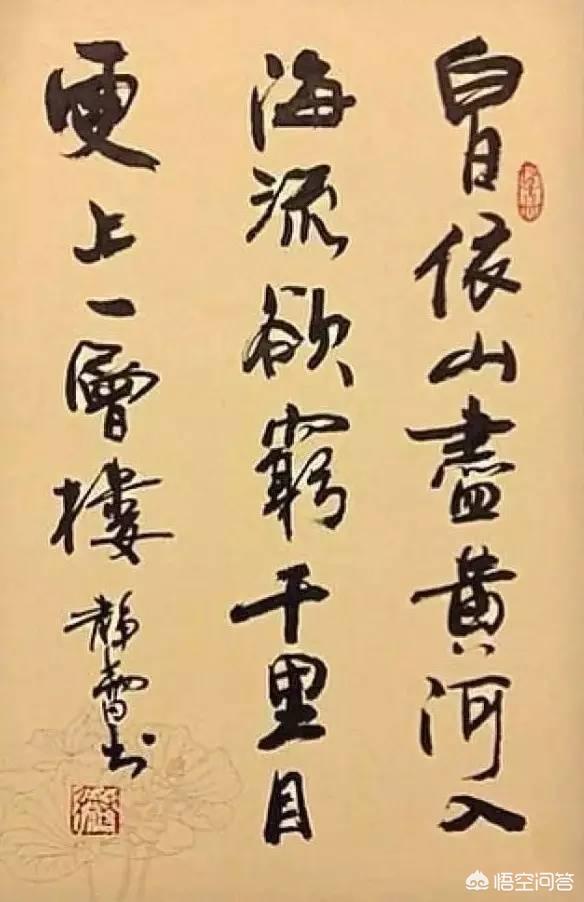 白日依山盡黄河入
海流欲窮千里目
更上一層樓
靜
書
悟空问答